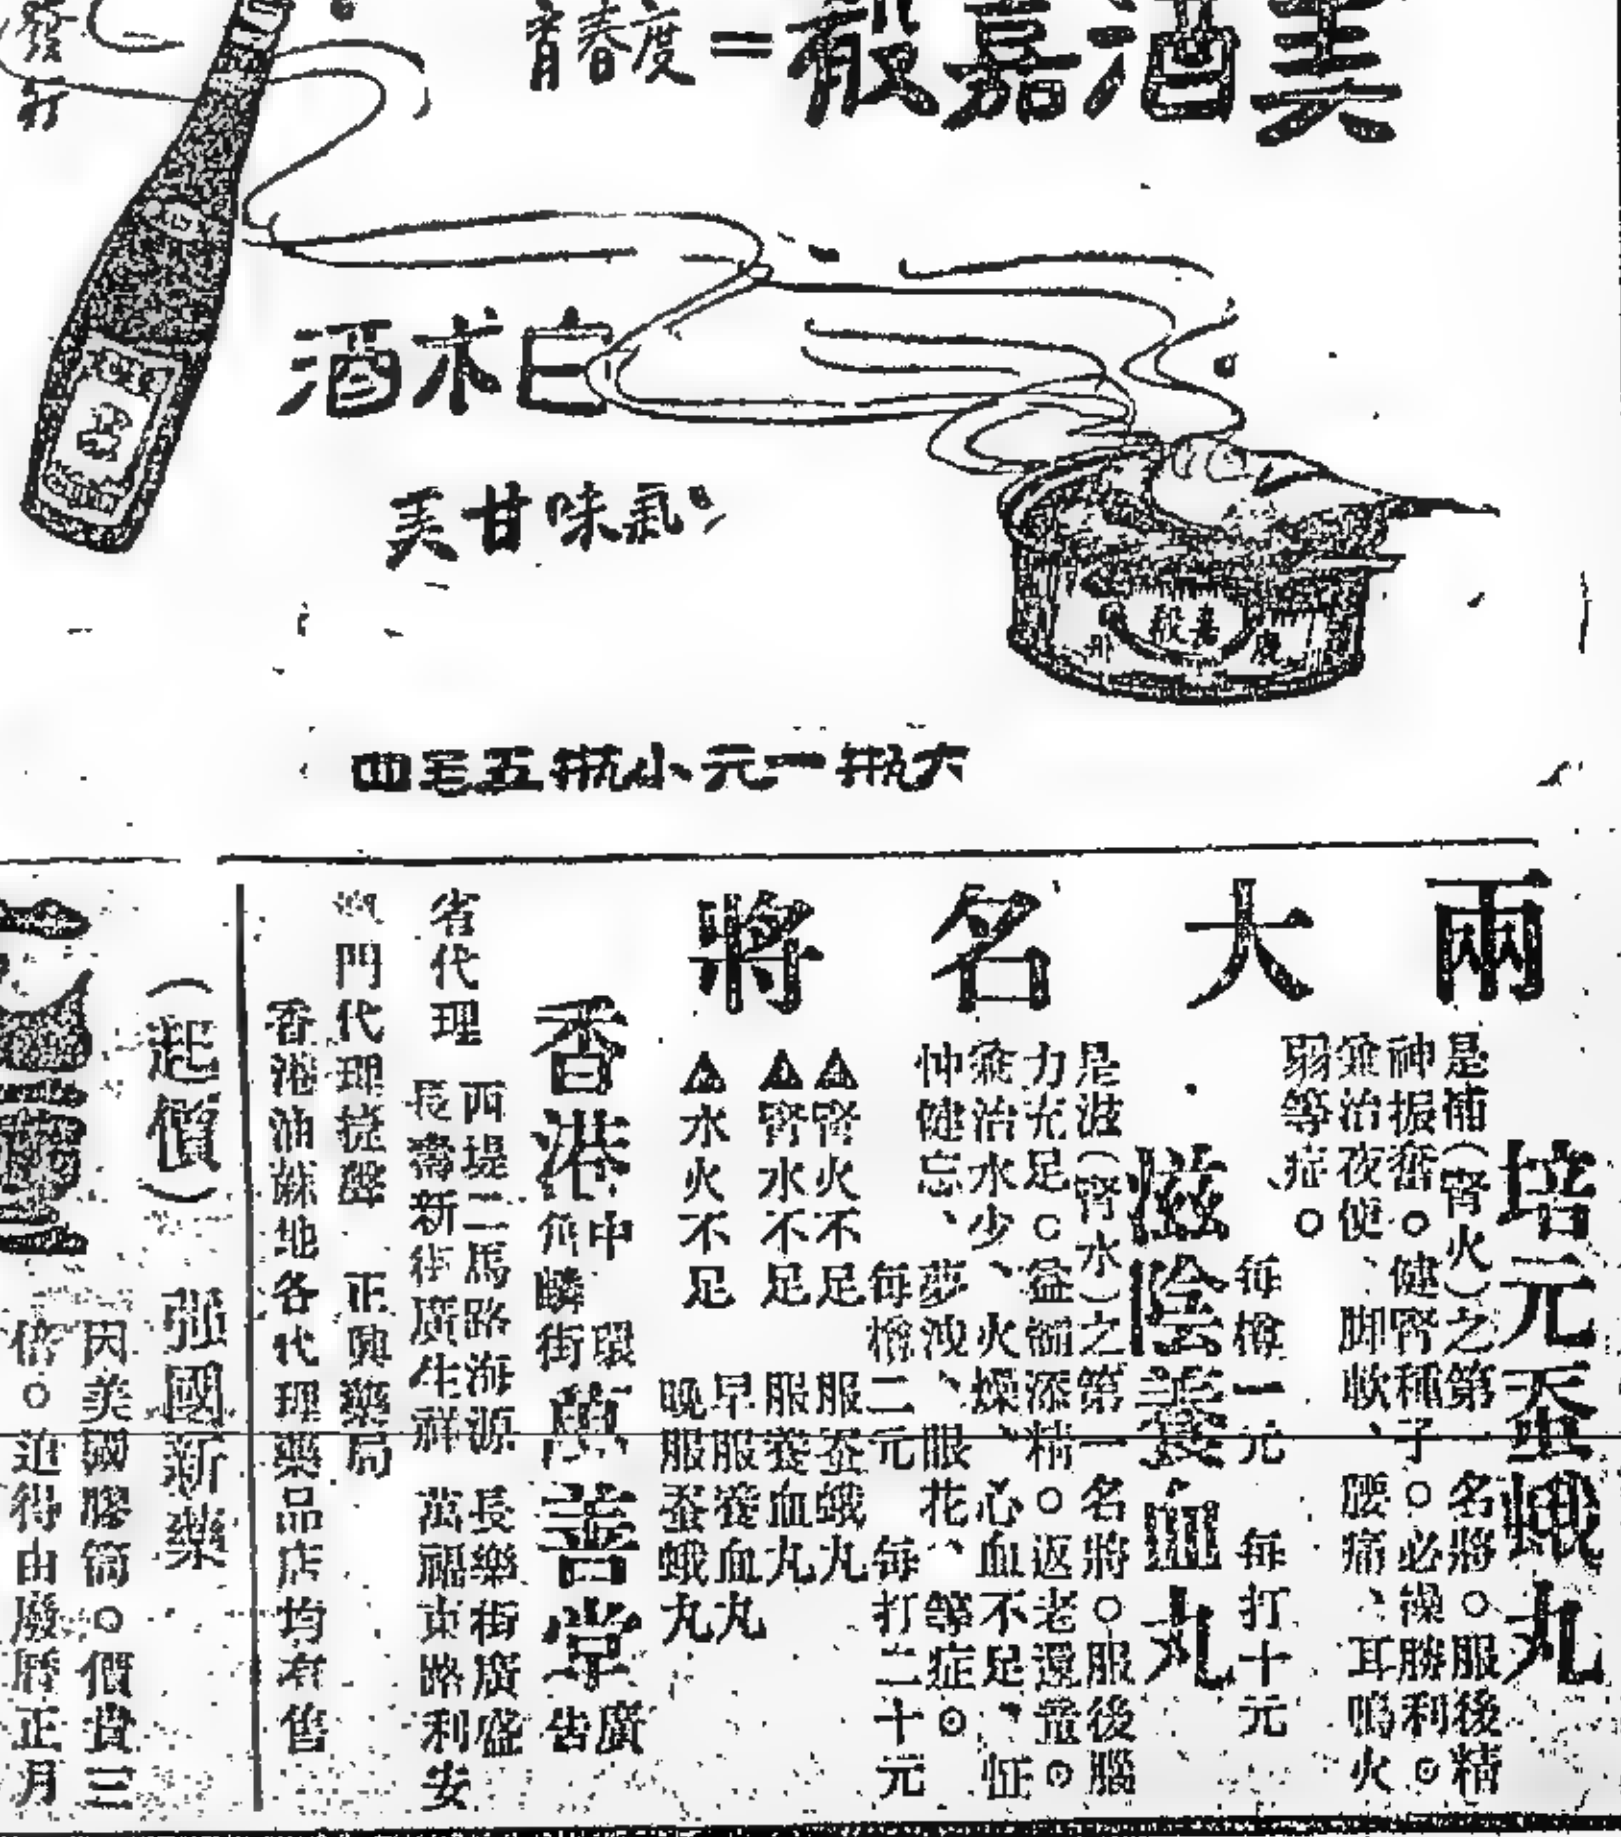 美酒嘉殽=青春度
發行
白术酒
氣味甘美
嘉殽
大瓶一元小瓶五毛四
兩大名將
培元蚕蛾丸
是補(腎火)之第一名將○服後精
神振奮○健腎種子○必操勝利○
兼治夜便、脚軟、腰痛、耳鳴火
弱等症○
每樽一元 每打十元
滋陰養血丸
是滋(腎水)之第一名將○服後腦
力充足○益髓添精○返老還童○
兼治水少、火燥、心血不足、怔
忡健忘、夢洩、眼花、等症○
每樽二元 每打二十元
▲腎火不足 服蚕蛾丸
▲腎水不足 服養血丸
▲水火不足 早服養血丸
晚服蚕蛾丸
香港中環
角麟街
廣善堂廣告
省代理
西堤二馬路海源 長樂街廣盛
長壽新街廣生祥 萬福東路利安
門代理 正興藥局
香港油蔴地各代理藥品店均有售
(起價) 强國新藥
因美國膠筒○價貴三
倍○迫得由廢曆正月